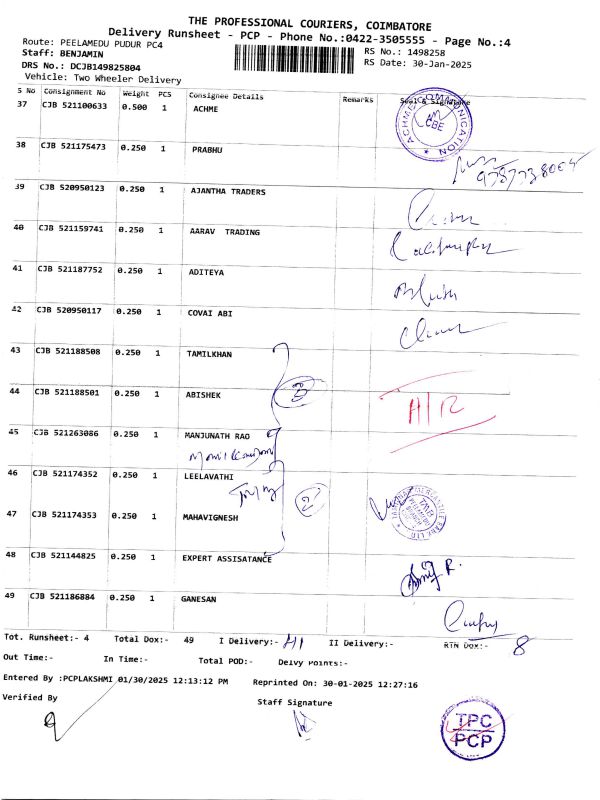 THE PROFESSIONAL COURIERS, COIMBATORE
Delivery Runsheet - PCP - Phone No.:0422-3505555 - Page No.:4
Route: PEELAMEDU PUDUR PC4
RS No.: 1498258
Staff: BENJAMIN
RS Date: 30-Jan-2025
DRS No.: DCJB149825804
Vehicle: Two Wheeler Delivery
S No Consignment No Weight PCS Consignee Details Remarks Seal & Signature
37 CJB 521100633 0.500 1 ACHME
ACHME COMMUNICATION
CBE
38 CJB 521175473 0.250 1 PRABHU
39 CJB 520950123 0.250 1 AJANTHA TRADERS
40 CJB 521159741 0.250 1 AARAV TRADING
41 CJB 521187752 0.250 1 ADITEYA
42 CJB 520950117 0.250 1 COVAI ABI
43 CJB 521188508 0.250 1 TAMILKHAN
44 CJB 521188501 0.250 1 ABISHEK
3
45 CJB 521263086 0.250 1 MANJUNATH RAO
46 CJB 521174352 0.250 1 LEELAVATHI
2
47 CJB 521174353 0.250 1 MAHAVIGNESH
48 CJB 521144825 0.250 1 EXPERT ASSISATANCE
49 CJB 521186884 0.250 1 GANESAN
Tot. Runsheet:- 4 Total Dox:- 49 I Delivery:- 41 II Delivery:- RTN Dox:- 8
Out Time:- In Time:- Total POD:- Delvy Points:-
Entered By :PCPLAKSHMI 01/30/2025 12:13:12 PM Reprinted On: 30-01-2025 12:27:16
Verified By
Staff Signature
TPC
PCP